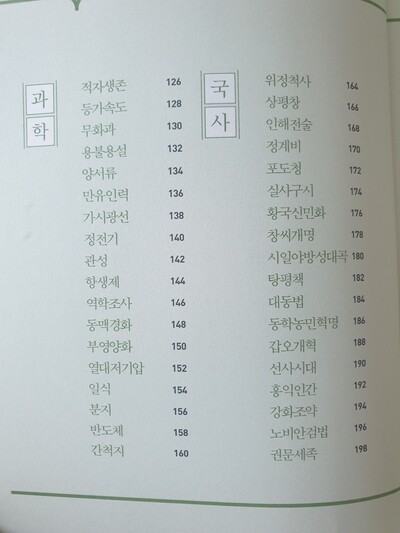 과학
적자생존 126
등가속도 128
무화과 130
용불용설 132
양서류 134
만유인력 136
가시광선 138
정전기 140
관성 142
항생제 144
역학조사 146
동맥경화 148
부영양화 150
열대저기압 152
일식 154
분지 156
반도체 158
간척지 160
국사
위정척사 164
상평창 166
인해전술 168
정계비 170
포도청 172
실사구시 174
황국신민화 176
창씨개명 178
시일야방성대곡 180
탕평책 182
대동법 184
동학농민혁명 186
갑오개혁 188
선사시대 190
홍익인간 192
강화조약 194
노비안검법 196
권문세족 198